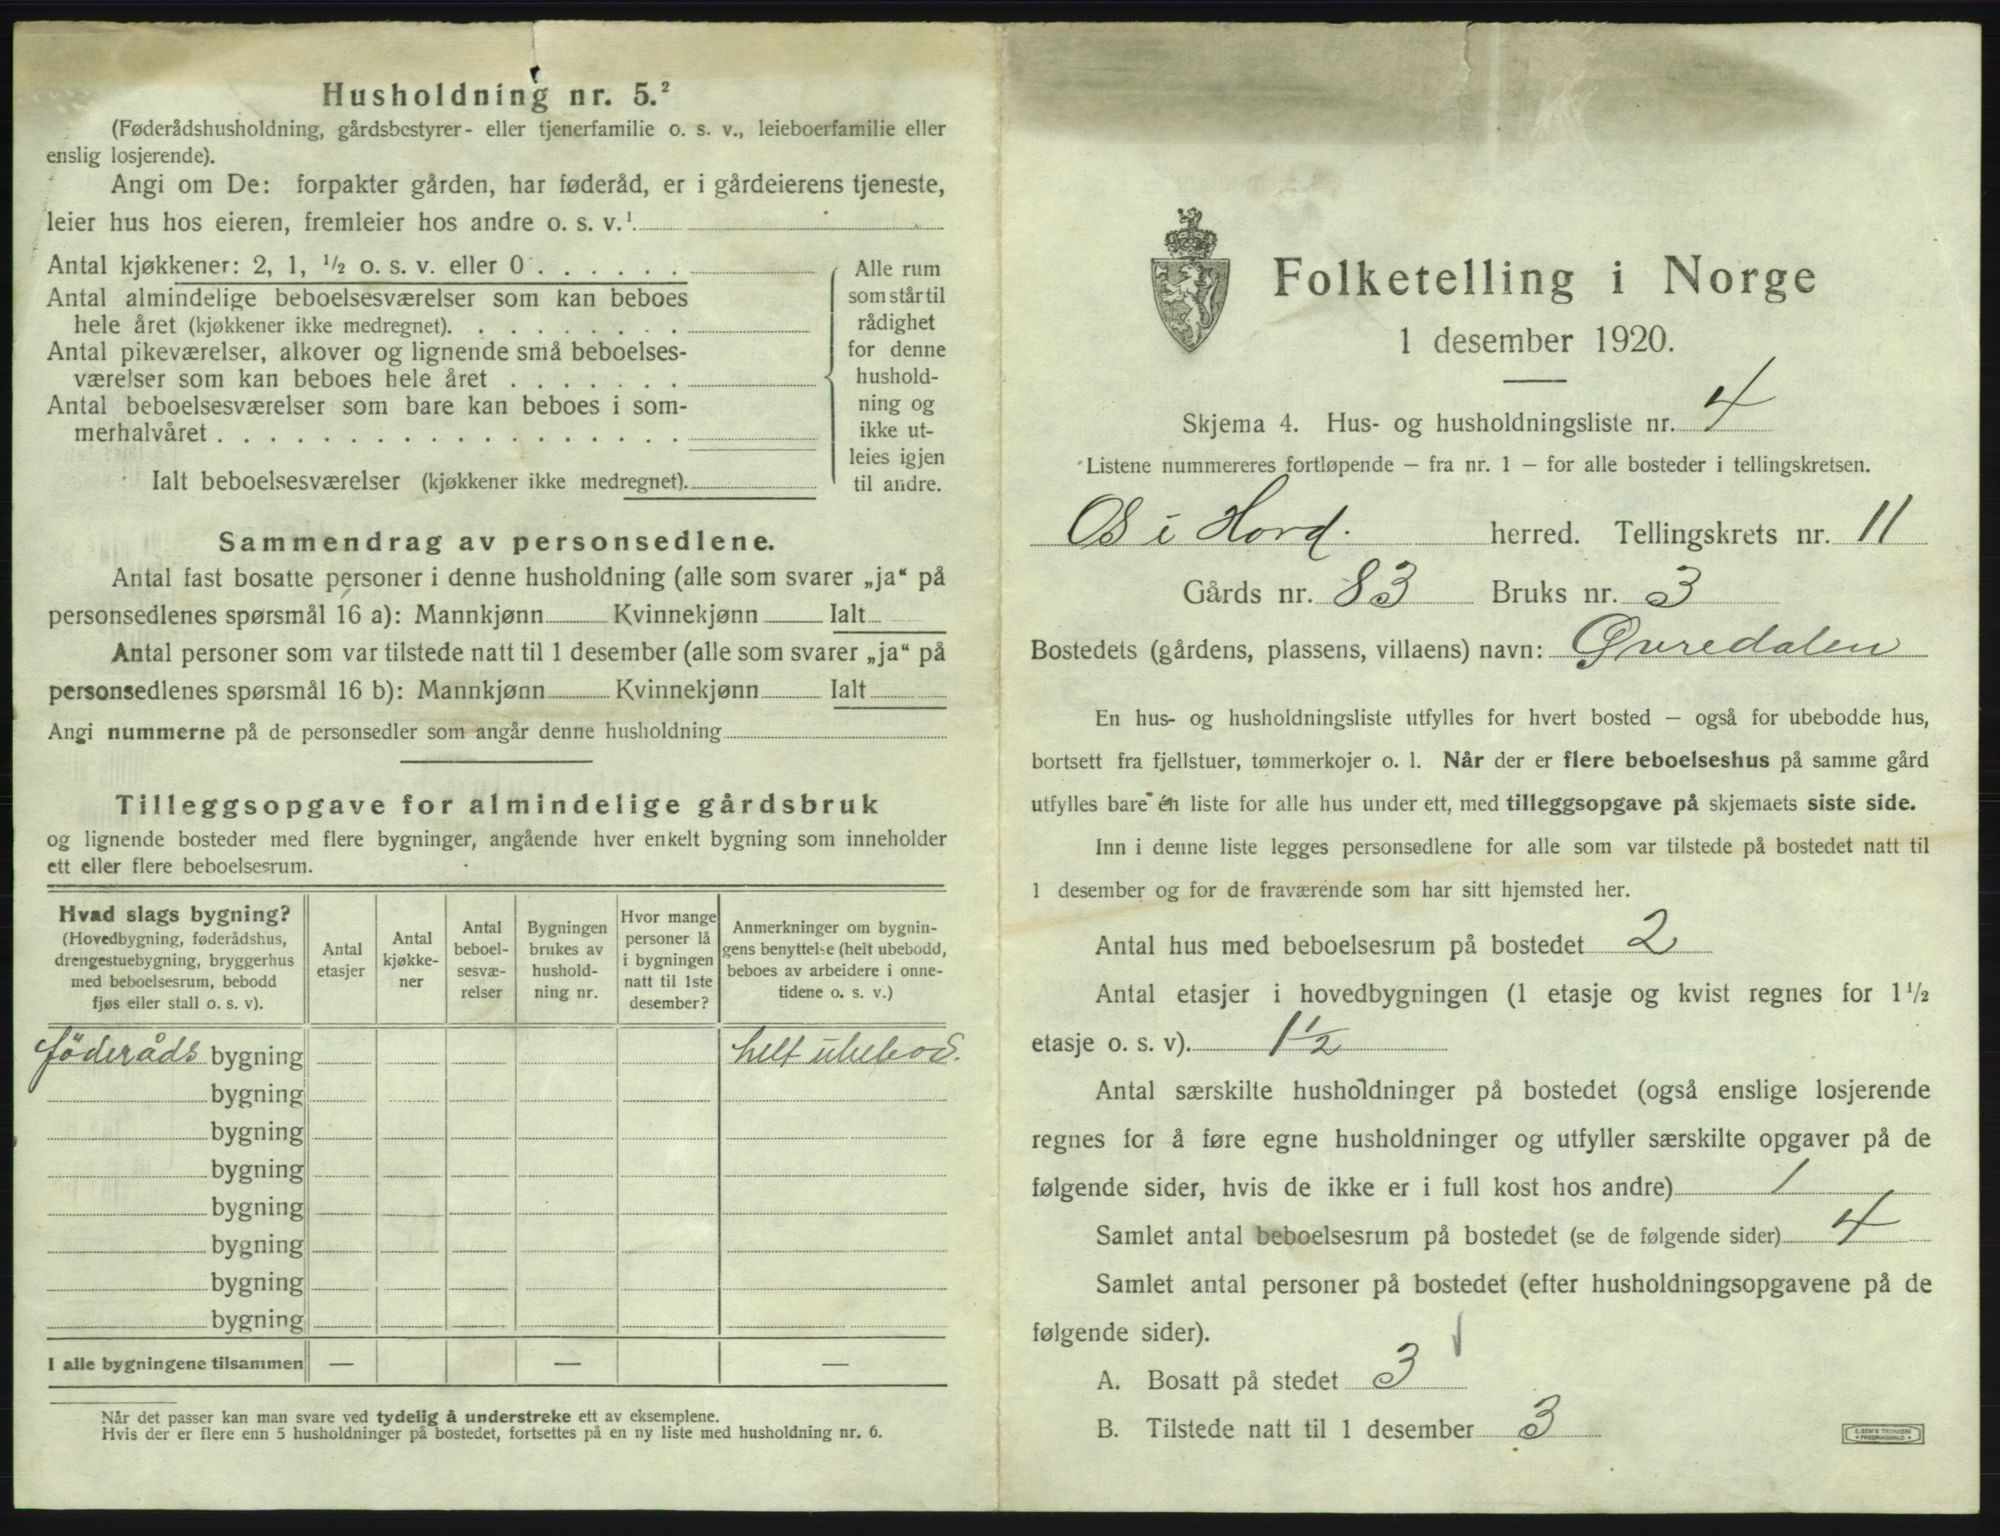 Husholdning nr. 5.²
(Føderådshusholdning, gårdsbestyrer- eller tjenerfamilie o. s. v., leieboerfamilie eller
enslig losjerende).
Angi om De: forpakter gården, har føderåd, er i gårdeierens tjeneste,
leier hus hos eieren, fremleier hos andre o. s. v.¹
Antal kjøkkener: 2, 1, ½ o. s. v. eller 0 . . . . . .
Antal almindelige beboelsesværelser som kan beboes
hele året (kjøkkener ikke medregnet). . . . . . . . .
Antal pikeværelser, alkover og lignende små beboelses-
værelser som kan beboes hele året . . . . . . .
Antal beboelsesværelser som bare kan beboes i som-
merhalvåret . . . . . . . . . . . . . . . . . .
Ialt beboelsesværelser (kjøkkener ikke medregnet).
Alle rum
som står til
rådighet
for denne
hushold-
ning og
ikke ut-
leies igjen
til andre.
Sammendrag av personsedlene.
Antal fast bosatte personer i denne husholdning (alle som svarer „ja“ på
personsedlenes spørsmål 16 a): Mannkjønn Kvinnekjønn Ialt
Antal personer som var tilstede natt til 1 desember (alle som svarer „ja“ på
personsedlenes spørsmål 16 b): Mannkjønn Kvinnekjønn Ialt
Angi nummerne på de personsedler som angår denne husholdning
Tilleggsopgave for almindelige gårdsbruk
og lignende bosteder med flere bygninger, angående hver enkelt bygning som inneholder
ett eller flere beboelsesrum.
Hvad slags bygning?
(Hovedbygning, føderådshus,
drengestuebygning, bryggerhus
med beboelsesrum, bebodd
fjøs eller stall o. s. v).
Antal
etasjer
Antal
kjøkke-
ner
Antal
beboel-
sesvæ-
relser
Bygningen
brukes av
hushold-
ning nr.
Hvor mange
personer lå
i bygningen
natt til 1ste
desember?
Anmerkninger om bygnin-
gens benyttelse (helt ubebodd,
beboes av arbeidere i onne-
tidene o. s. v.)
föderåds bygning helt ubebod.
bygning
bygning
bygning
bygning
bygning
bygning
bygning
I alle bygningene tilsammen — — —
Når det passer kan man svare ved tydelig å understreke ett av eksemplene.
Hvis der er flere enn 5 husholdninger på bostedet, fortsettes på en ny liste med husholdning nr. 6.
Folketelling i Norge
1 desember 1920.
Skjema 4. Hus- og husholdningsliste nr. 4
Listene nummereres fortløpende – fra nr. 1 – for alle bosteder i tellingskretsen.
Os i Hord. herred. Tellingskrets nr. 11
Gårds nr. 83 Bruks nr. 3
Bostedets (gårdens, plassens, villaens) navn: Øvredalen
En hus- og husholdningsliste utfylles for hvert bosted – også for ubebodde hus,
bortsett fra fjellstuer, tømmerkojer o. l. Når der er flere beboelseshus på samme gård
utfylles bare én liste for alle hus under ett, med tilleggsopgave på skjemaets siste side.
Inn i denne liste legges personsedlene for alle som var tilstede på bostedet natt til
1 desember og for de fraværende som har sitt hjemsted her.
Antal hus med beboelsesrum på bostedet 2
Antal etasjer i hovedbygningen (1 etasje og kvist regnes for 1½
etasje o. s. v). 1½
Antal særskilte husholdninger på bostedet (også enslige losjerende
regnes for å føre egne husholdninger og utfyller særskilte opgaver på de
følgende sider, hvis de ikke er i full kost hos andre) 1
Samlet antal beboelsesrum på bostedet (se de følgende sider) 4
Samlet antal personer på bostedet (efter husholdningsopgavene på de
følgende sider).
A. Bosatt på stedet 3
B. Tilstede natt til 1 desember 3